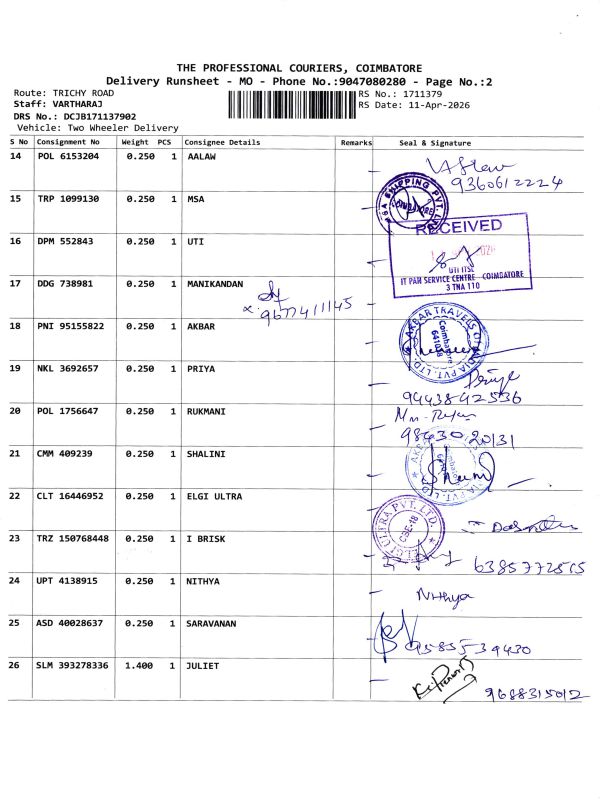 THE PROFESSIONAL COURIERS, COIMBATORE
Delivery Runsheet - MO - Phone No.:9047080280 - Page No.:2
Route: TRICHY ROAD
RS No.: 1711379
Staff: VARTHARAJ
RS Date: 11-Apr-2026
DRS No.: DCJB171137902
Vehicle: Two Wheeler Delivery
S No Consignment No Weight PCS Consignee Details Remarks Seal & Signature
14 POL 6153204 0.250 1 AALAW
9360612224
15 TRP 1099130 0.250 1 MSA
SHIPPING PVT. LTD
COIMBATORE
16 DPM 552843 0.250 1 UTI
RECEIVED
UTI ITSL
IT PAN SERVICE CENTRE COIMBATORE
3 TNA 110
17 DDG 738981 0.250 1 MANIKANDAN
x 9677411145
18 PNI 95155822 0.250 1 AKBAR
AKBAR TRAVELS OF INDIA PVT. LTD.
Coimbatore
641018
19 NKL 3692657 0.250 1 PRIYA
Priya
9443842536
20 POL 1756647 0.250 1 RUKMANI
9843020131
21 CMM 409239 0.250 1 SHALINI
22 CLT 16446952 0.250 1 ELGI ULTRA
ELGI ULTRA PVT. LTD.
CBE-18
23 TRZ 150768448 0.250 1 I BRISK
6385772515
24 UPT 4138915 0.250 1 NITHYA
Nithya
25 ASD 40028637 0.250 1 SARAVANAN
9585539430
26 SLM 393278336 1.400 1 JULIET
9688315012